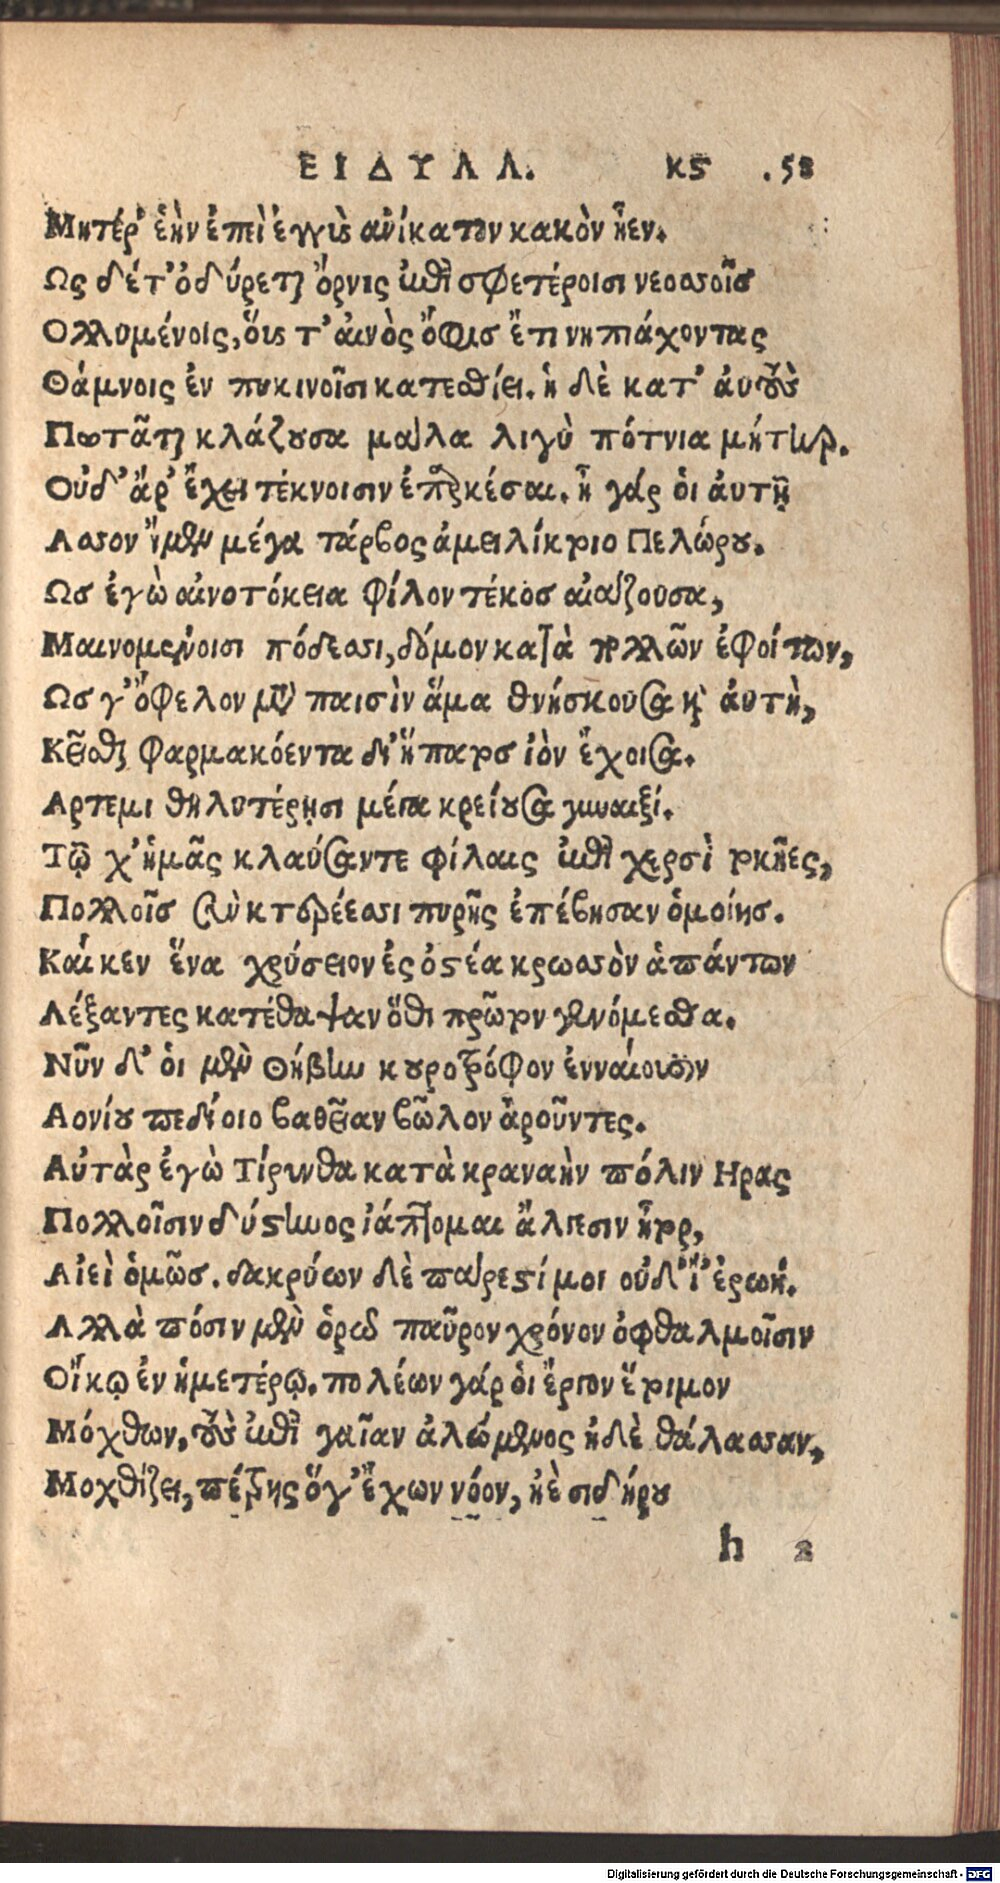 ΕΙΔΥΛΛ. κϛ .58
Μητέρ' ἑὴν ἐπεὶ ἐγγὺς ἀνίκατον κακὸν ἦεν.
Ως δέ τ' ὀδύρεται ὄρνις ἐπὶ σφετέροισι νεοσσοῖς
Ολλυμένοις, οὕς τ' αἰνὸς ὄφις ἔτι νηπιάχοντας
Θάμνοις ἐν πυκινοῖσι κατεσθίει. ἡ δὲ κατ' αὐτοὺς
Πωτᾶται κλάζουσα μάλα λιγὺ πότνια μήτηρ.
Οὐδ' ἄρ' ἔχει τέκνοισιν ἐπαρκέσαι. ἦ γάρ οἱ αὐτῇ
Ασσον ἴμεν μέγα τάρβος ἀμειλίκτοιο Πελώρου.
Ως ἐγὼ αἰνοτόκεια φίλον τέκος αἰάζουσα,
Μαινομένοισι πόδεσσι, δόμον κατὰ πολλῶν ἐφοίτων,
Ως γ' ὄφελον μὲν παισὶν ἅμα θνήσκουσα καὶ αὐτὴ,
Κεῖσθαι φαρμακόεντα δι' ἥπατος ἰὸν ἔχοισα.
Αρτεμι θηλυτέρῃσι μέγα κρείουσα γυναιξί.
Τῷ χ' ἡμᾶς κλαύσαντε φίλαις ἐπὶ χερσὶ τοκῆες,
Πολλοῖς σὺν κτερέεσσι πυρῆς ἐπέβησαν ὁμοίης.
Καί κεν ἕνα χρύσειον ἐς ὀστέα κρωσσὸν ἁπάντων
Λέξαντες κατέθαψαν ὅθι πρῶτον γενόμεσθα.
Νῦν δ' οἱ μὲν Θήβην κουροτρόφον ἐνναίουσιν
Αονίου πεδίοιο βαθεῖαν βῶλον ἀροῦντες.
Αὐτὰρ ἐγὼ Τίρυνθα κατὰ κραναὴν πόλιν Ηρας
Πολλοῖσιν δύστηνος ἰάπτομαι ἄλγεσιν ἦτορ,
Αἰεὶ ὁμῶς. δακρύων δὲ πάρεστί μοι οὐδ' ἴ' ἐρωή.
Αλλὰ πόσιν μὲν ὁρῶ παῦρον χρόνον ὀφθαλμοῖσιν
Οἴκῳ ἐν ἡμετέρῳ. πολέων γάρ οἱ ἔργον ἕτοιμον
Μόχθων, τοὺς ἐπὶ γαῖαν ἀλώμενος ἠδὲ θάλασσαν,
Μοχθίζει, πέτρης ὅγ' ἔχων νόον, ἠὲ σιδήρου
h 2
Digitalisierung gefördert durch die Deutsche Forschungsgemeinschaft - DFG